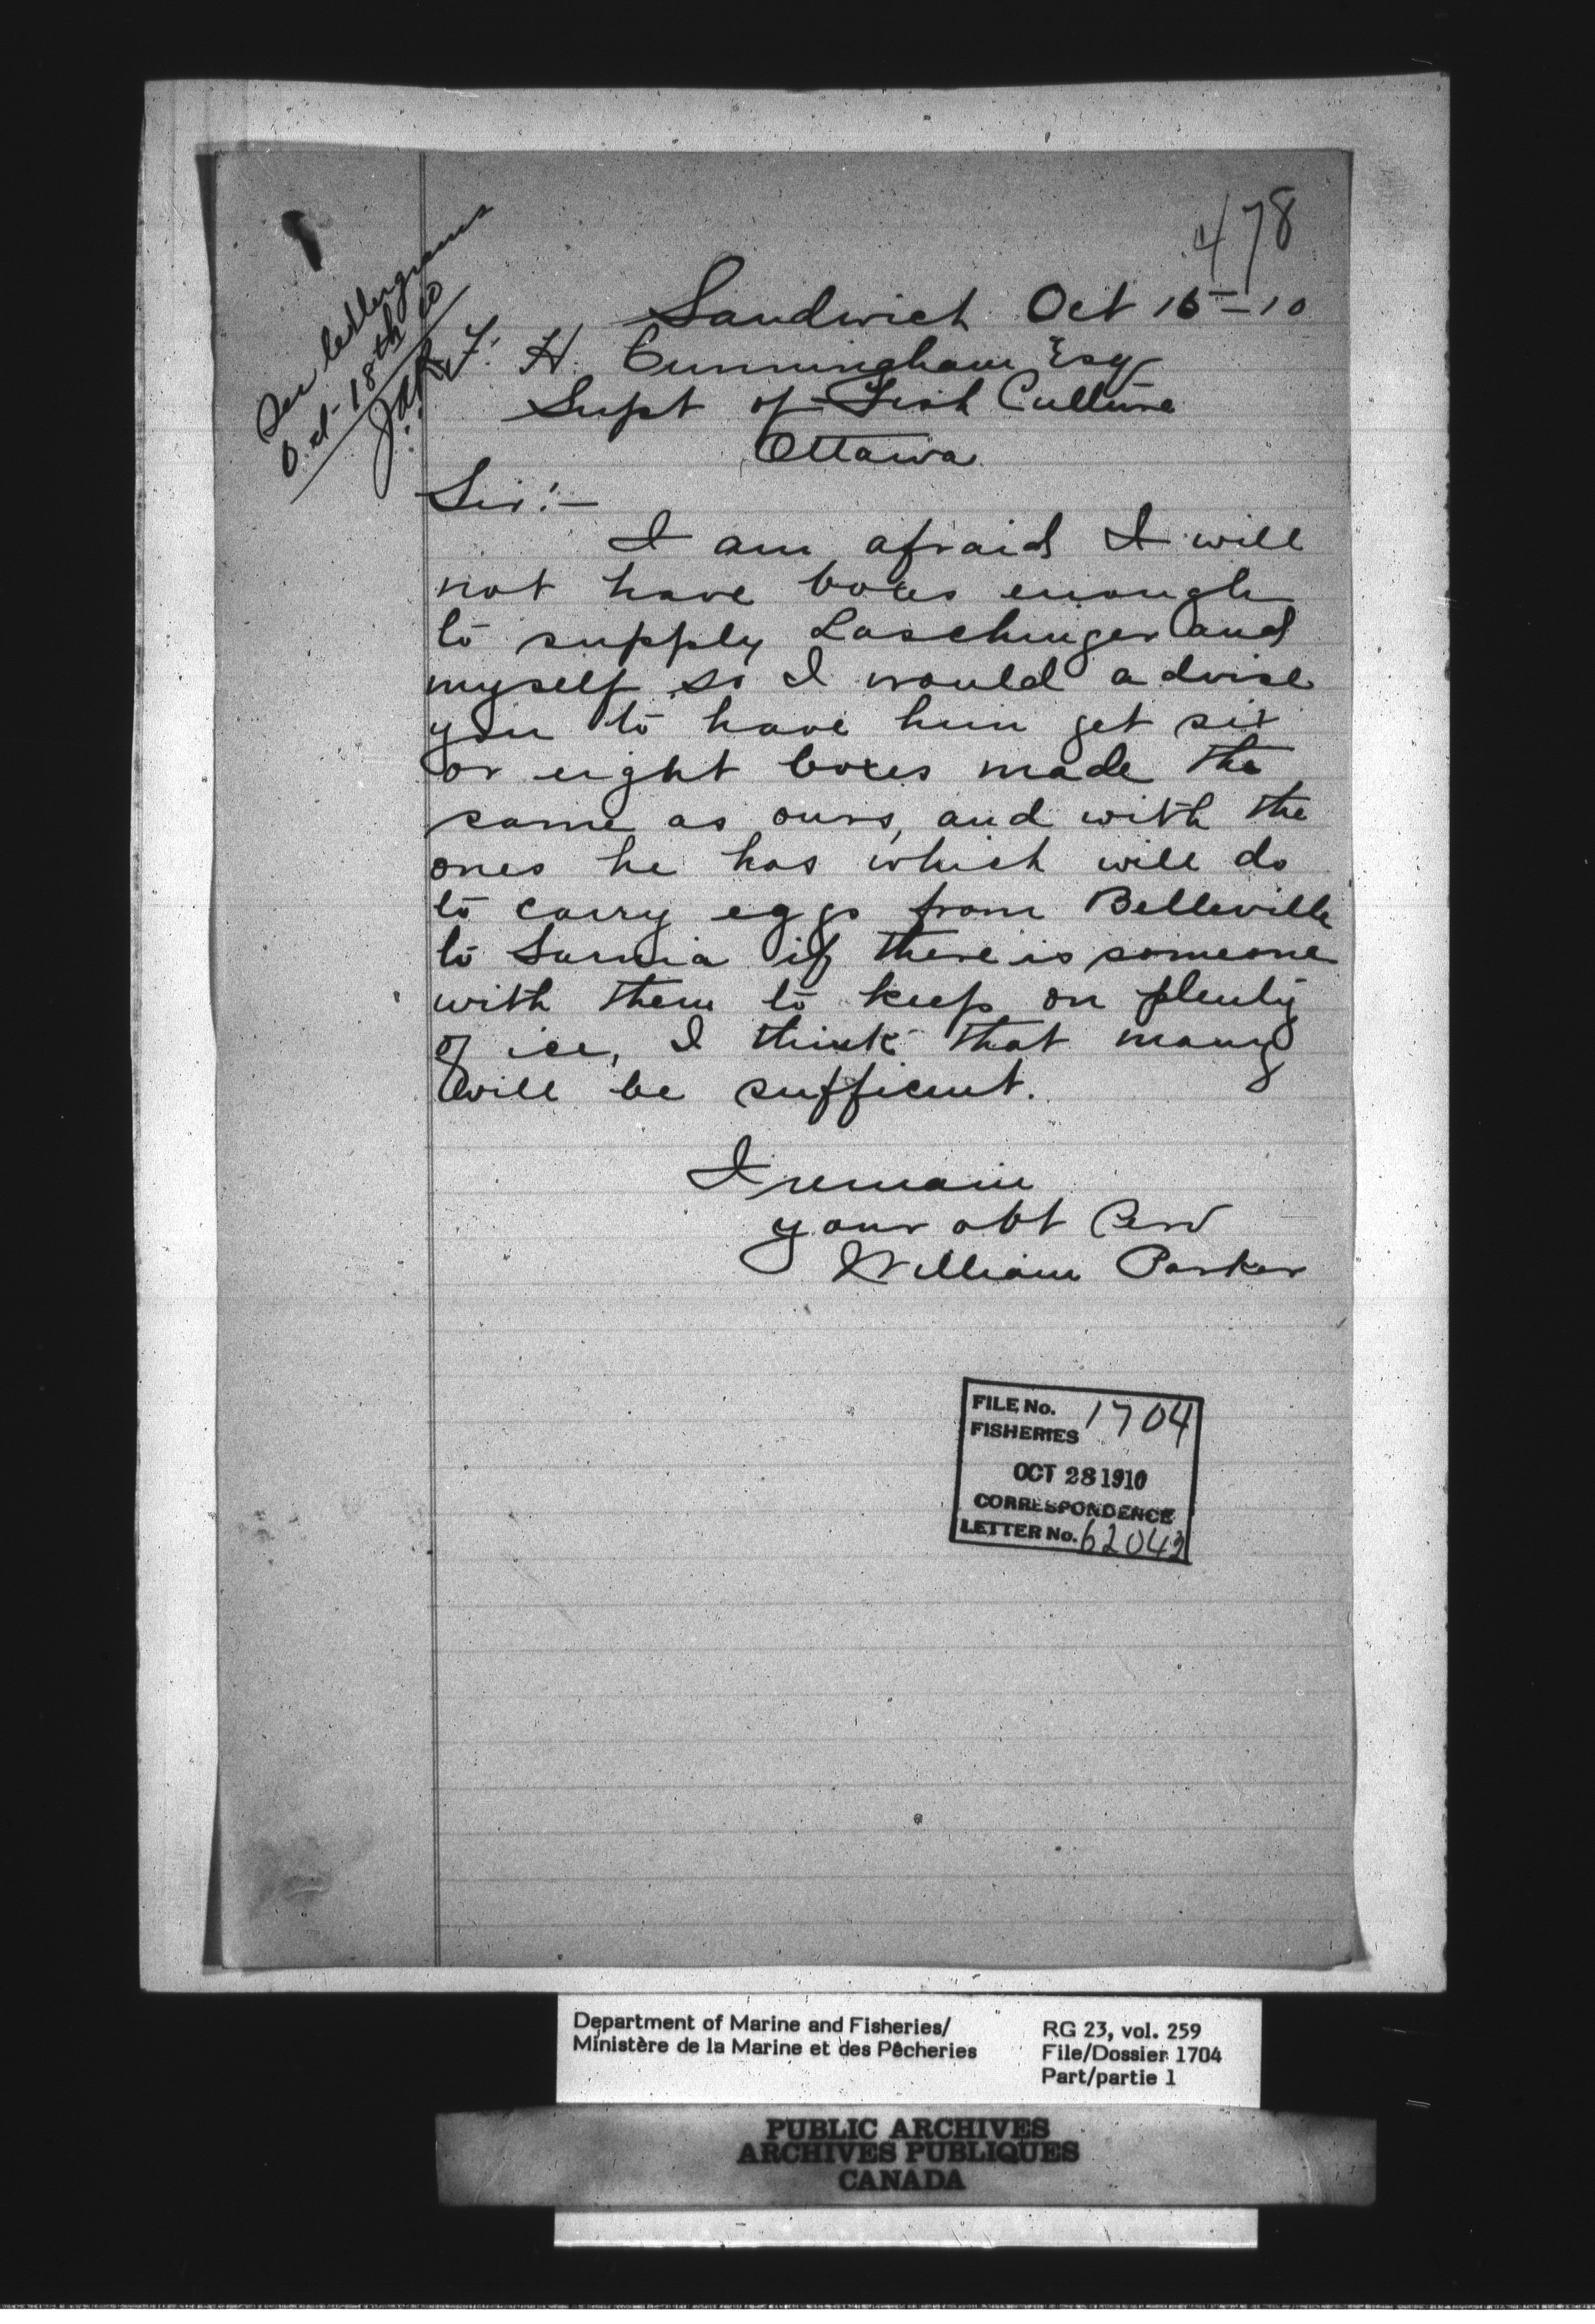 478
See lettergrams
Oct 18th 10
J.A.R.
Sandwich Oct 16 - 10
F. H. Cunningham Esq
Supt of Fish Culture
Ottawa
Sir:-
I am afraid I will
not have boxes enough
to supply Laschinger and
myself so I would advise
you to have him get six
or eight boxes made the
same as ours, and with the
ones he has which will do
to carry eggs from Belleville
to Sarnia if there is someone
with them to keep on plenty
of ice, I think that many
will be sufficient.
I remain
your obt Serv
William Parker
FILE No. 1704
FISHERIES
OCT 28 1910
CORRESPONDENCE
LETTER No. 62042
Department of Marine and Fisheries/
Ministère de la Marine et des Pêcheries
RG 23, vol. 259
File/Dossier 1704
Part/partie 1
PUBLIC ARCHIVES
ARCHIVES PUBLIQUES
CANADA